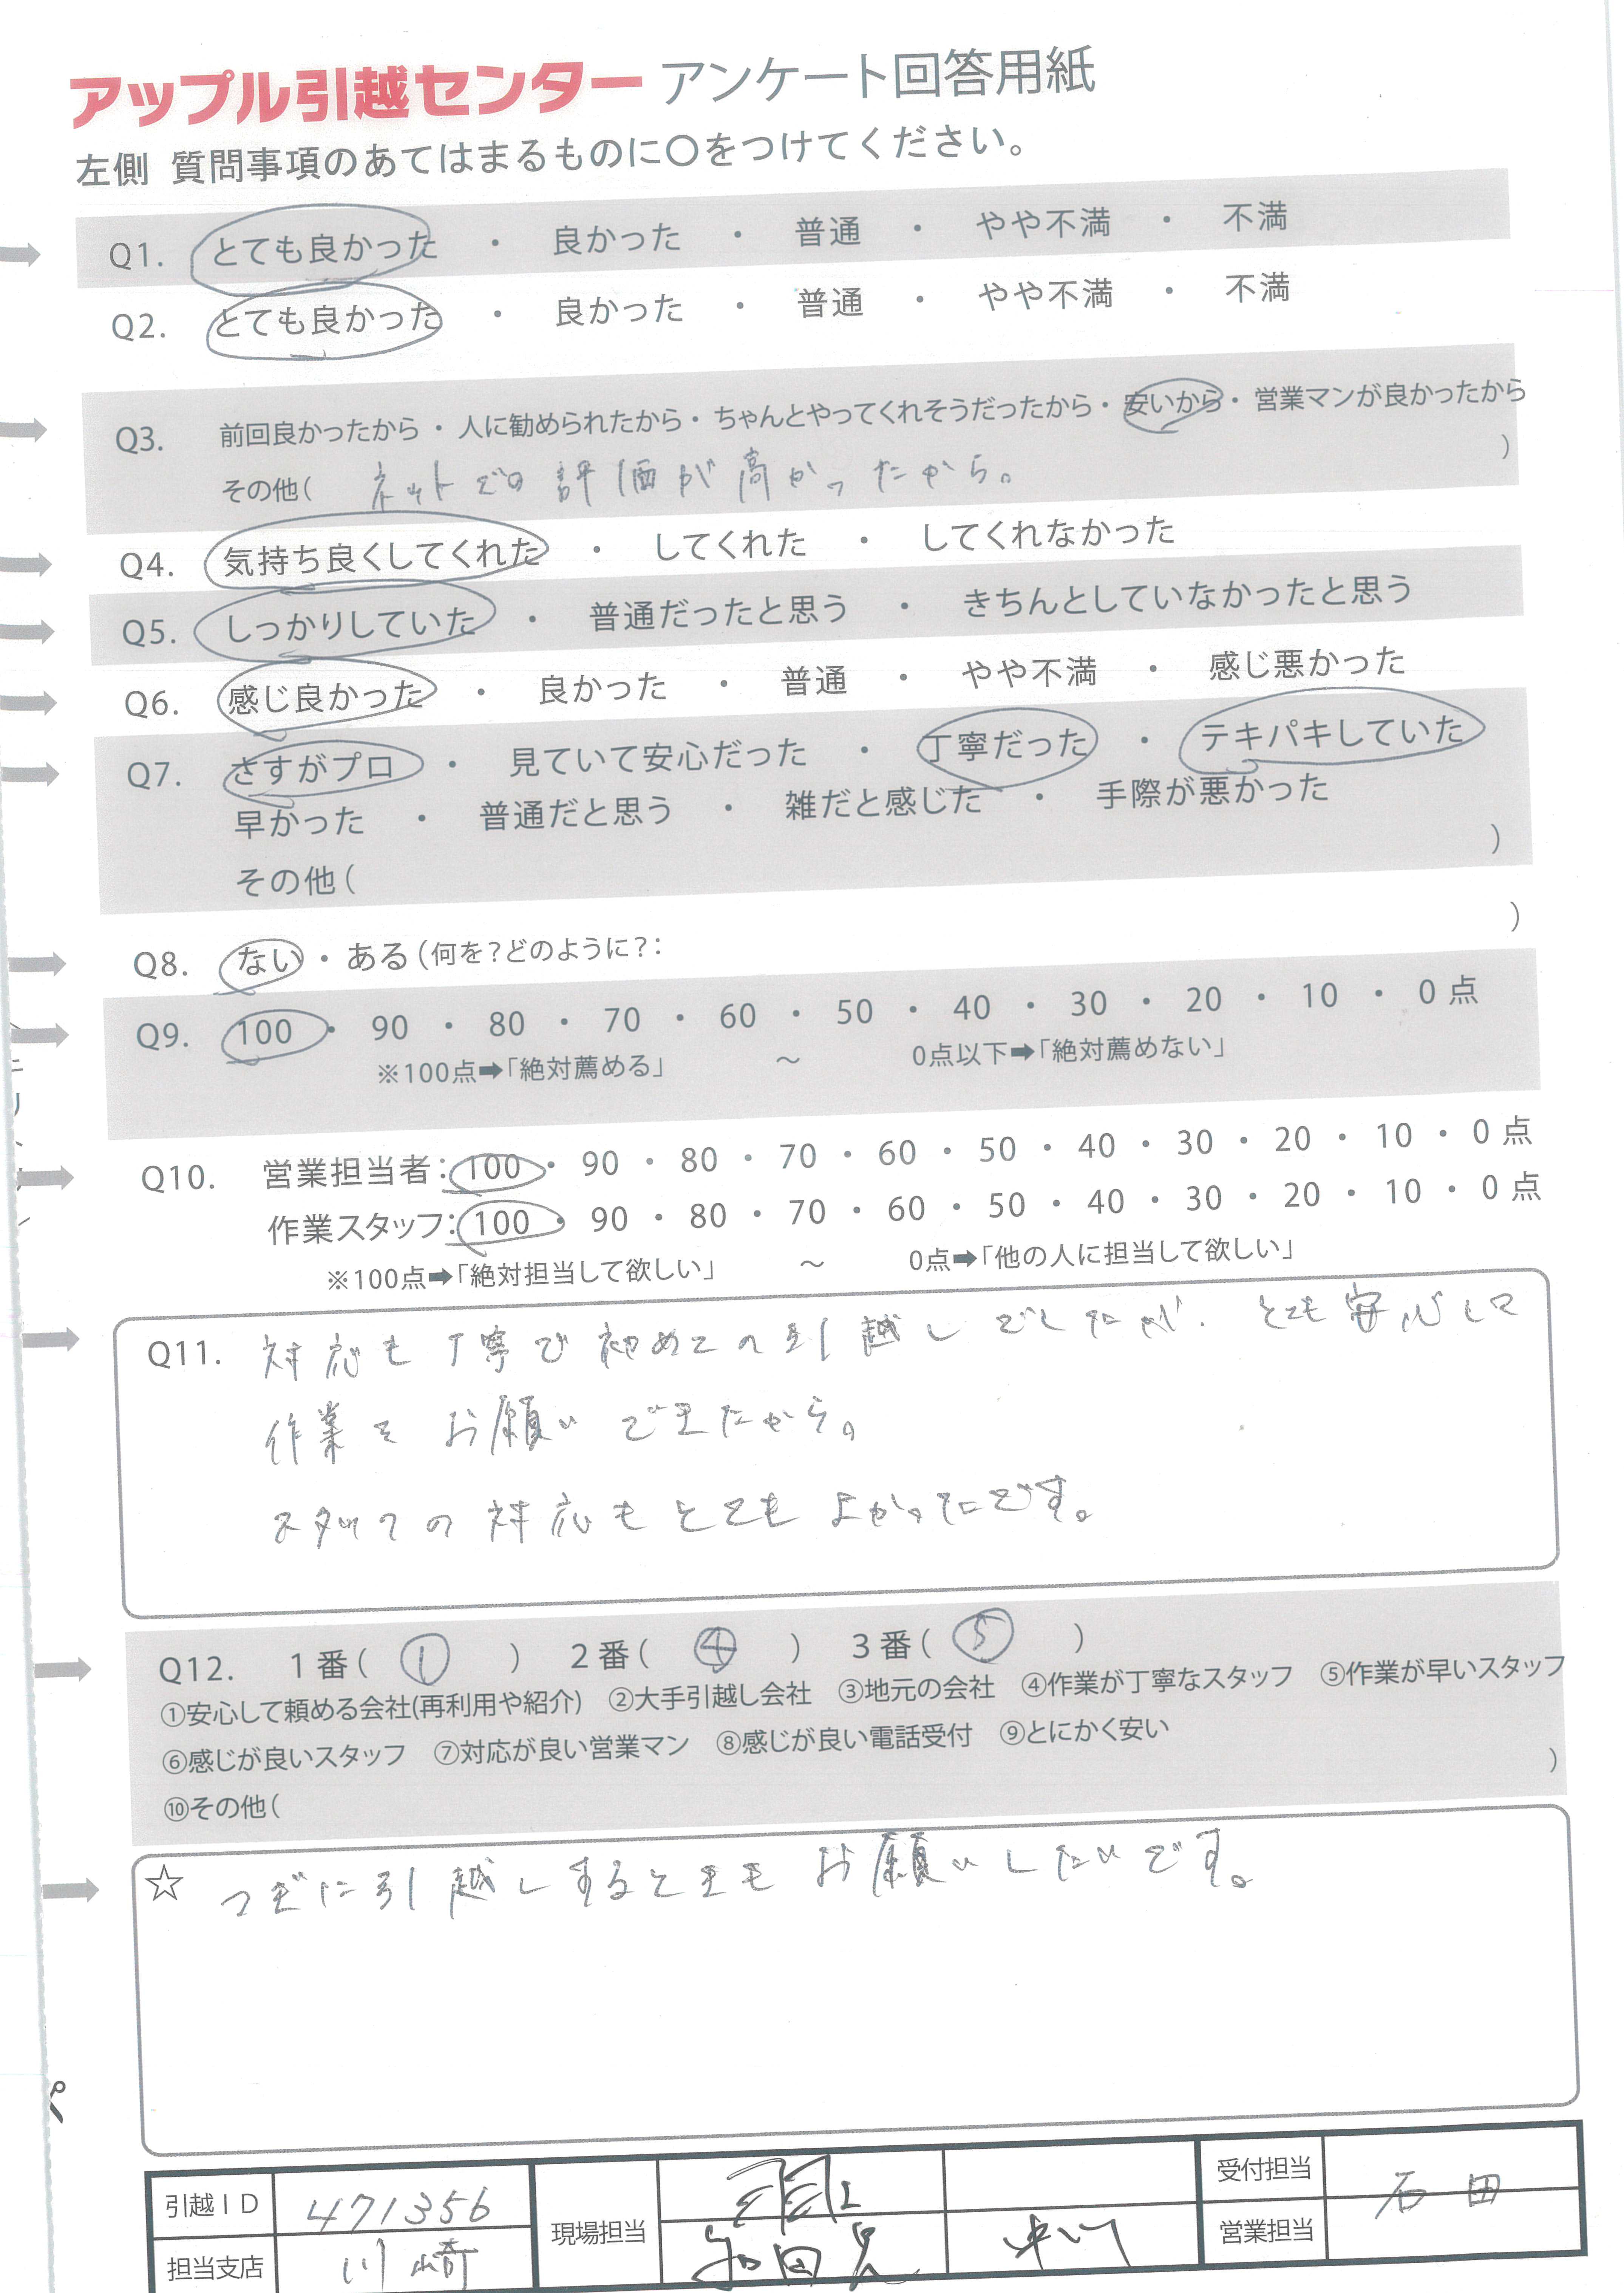 アップル引越センター アンケート回答用紙
左側 質問事項のあてはまるものに○をつけてください。
Q1. とても良かった ・ 良かった ・ 普通 ・ やや不満 ・ 不満
Q2. とても良かった ・ 良かった ・ 普通 ・ やや不満 ・ 不満
Q3. 前回良かったから・人に勧められたから・ちゃんとやってくれそうだったから・安いから・営業マンが良かったから
その他( ネットでの評価が高かったから。 )
Q4. 気持ち良くしてくれた ・ してくれた ・ してくれなかった
Q5. しっかりしていた ・ 普通だったと思う ・ きちんとしていなかったと思う
Q6. 感じ良かった ・ 良かった ・ 普通 ・ やや不満 ・ 感じ悪かった
Q7. さすがプロ ・ 見ていて安心だった ・ 丁寧だった ・ テキパキしていた
早かった ・ 普通だと思う ・ 雑だと感じた ・ 手際が悪かった
その他( )
Q8. ない・ある(何を?どのように?: )
Q9. 100 ・ 90 ・ 80 ・ 70 ・ 60 ・ 50 ・ 40 ・ 30 ・ 20 ・ 10 ・ 0 点
※100点➡「絶対薦める」 ～ 0点以下➡「絶対薦めない」
Q10. 営業担当者:100・90・80・70・60・50・40・30・20・10・0 点
作業スタッフ:100・90・80・70・60・50・40・30・20・10・0 点
※100点➡「絶対担当して欲しい」 ～ 0点➡「他の人に担当して欲しい」
Q11. 対応も丁寧で初めての引越しでしたが、とても安心して
作業をお願いできたから。
スタッフの対応もとてもよかったです。
Q12. 1番( ① ) 2番( ④ ) 3番( ⑤ )
①安心して頼める会社(再利用や紹介) ②大手引越し会社 ③地元の会社 ④作業が丁寧なスタッフ ⑤作業が早いスタッフ
⑥感じが良いスタッフ ⑦対応が良い営業マン ⑧感じが良い電話受付 ⑨とにかく安い
⑩その他( )
☆ つぎに引越しするときもお願いしたいです。
引越ID 471356 現場担当 受付担当 石田
担当支店 川崎 中川 営業担当